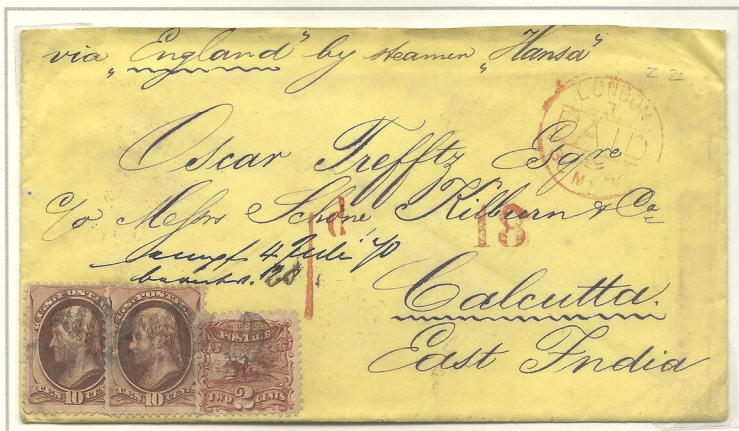 via „England" by steamer „Hansa"
22
LONDON
PAID
Oscar Trefftz Esqre
c/o Messrs Schöne, Kilburn & Co
1d
18
empf 4 Juli 70
Calcutta.
East India
U.S. POSTAGE
TEN 10 CENTS
U.S. POSTAGE
TEN 10 CENTS
POSTAGE
TWO 2 CENTS